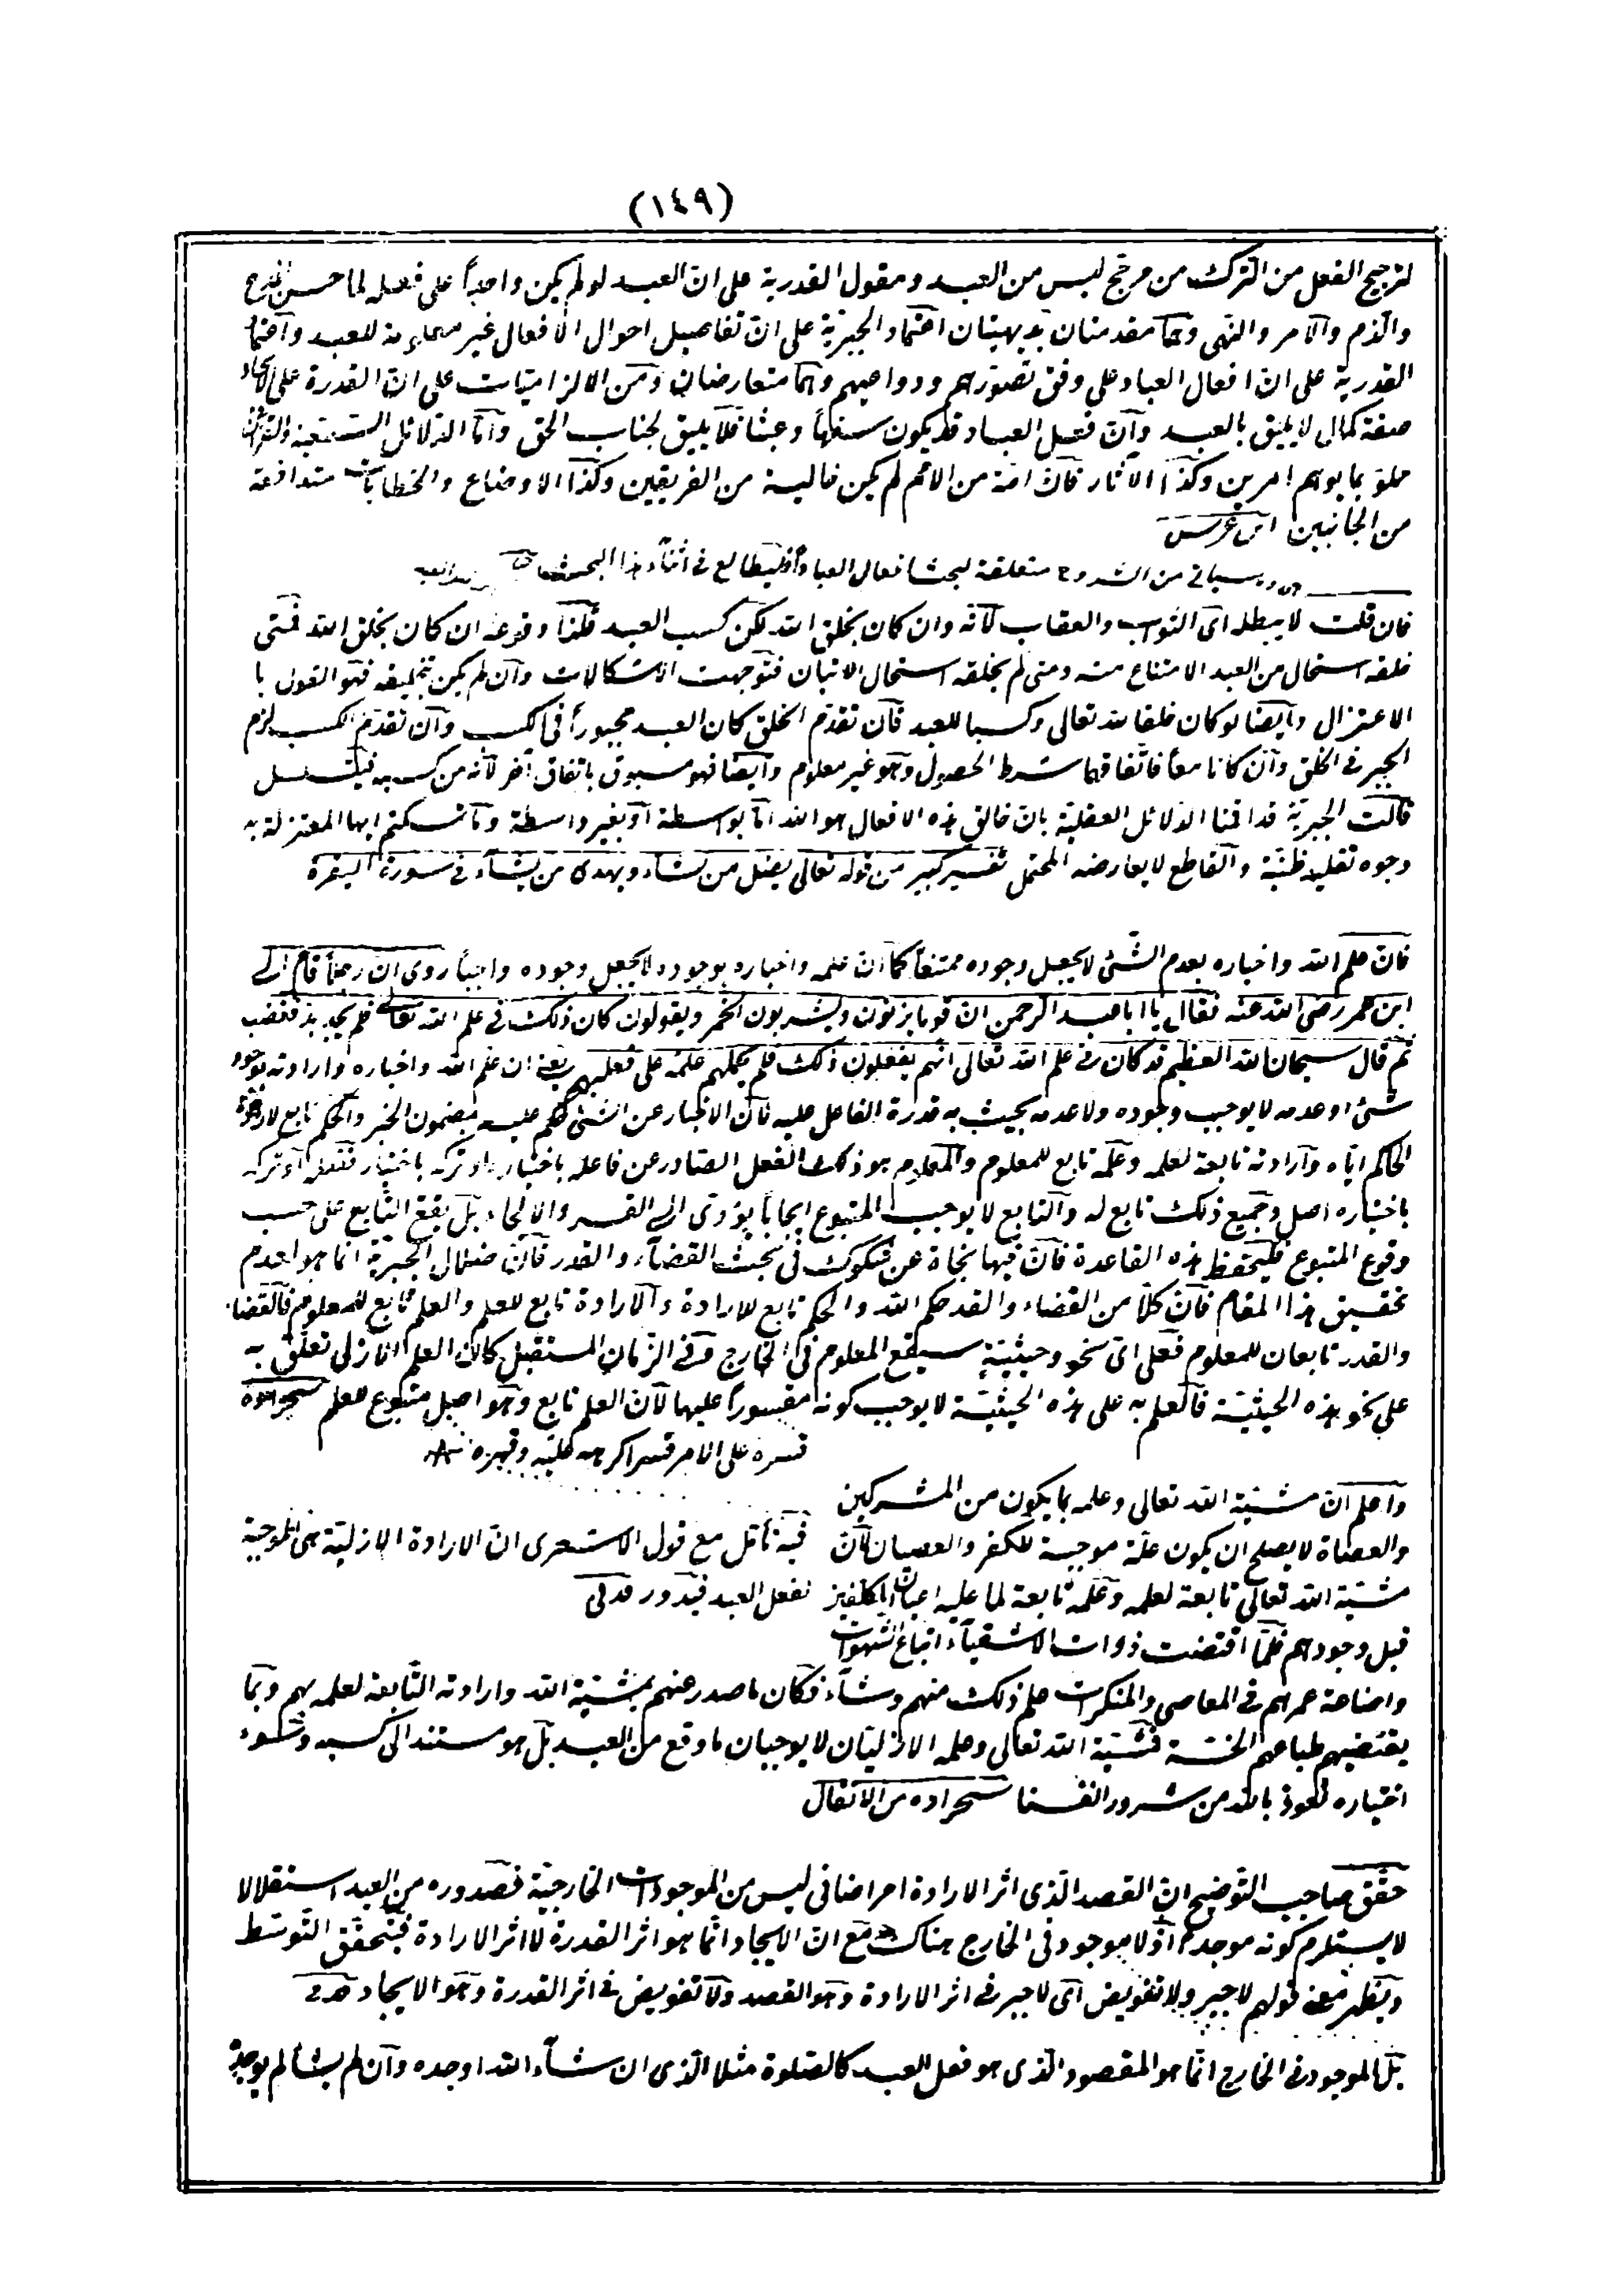 (١٤٩)
لترجيح الفعل من الترك من مرجح ليس من العبد ومقول القدرية على ان العبد لو لم يكن واحداً على فعله لما حسن المدح
والذم والامر والنهى وهما مقدمتان بديهيتان اعتماد الجبرية على ان تفاصيل احوال الافعال غير معلومة للعبد واعتماد
القدرية على ان افعال العباد على وفق تصورهم ودواعيهم وهما متعارضان ومن الالزاميات على ان القدرة على الايجاد
صفة كمال لا يليق بالعبد وان فعل العباد قد يكون سفهاً وعبثا فلا يليق لجناب الحق واما الدلائل السمعية والقرآن
مملو بما يوهم امرين وكذا الآثار فان امة من الامم لم يكن خالية من الفريقين وكذا الاوضاع والخطابات متدافعة
من الجانبين ابن غرس
وسيأتي من الشروح متعلقة لبحث افعال العباد فليطالع فى اثناء هذا البحث
فان قلت لا يبطله اى الثواب والعقاب لانه وان كان بخلق الله لكن كسب العبد قلنا وقوعه ان كان بخلق الله فمتى
خلقه استحال من العبد الامتناع منه ومتى لم يخلقه استحال الاتيان فتوجهت الاشكالات وان لم يكن بتخليقه فهو القول با
الاعتزال وايضا لو كان خلقا لله تعالى وكسبا للعبد فان تقدم الخلق كان العبد مجبوراً فى الكسب وان تقدم الكسب لزم
الجبر فى الخلق وان كانا معاً فاتفاقهما شرط الحصول وهو غير معلوم وايضا فهو مسبوق باتفاق آخر لانه من كسبه فيتسلسل
قالت الجبرية قد اقمنا الدلائل العقلية بان خالق هذه الافعال هو الله اما بواسطة او بغير واسطة وما تمسكتم ايها المعتزلة به
وجوه نقلية ظنية والقاطع لا يعارضه المحتمل تفسير كبير من قوله تعالى يضل من يشاء ويهدى من يشاء فى سورة البقرة
فان علم الله واخباره بعدم الشئ لا يجعل وجوده ممتنعاً كما ان علمه واخباره بوجوده لا يجعل وجوده واجباً روى ان رجلاً قام الى
ابن عمر رضى الله عنه فقال يا ابا عبد الرحمن ان قوما يزنون ويشربون الخمر ويقولون كان ذلك فى علم الله تعالى فلم نجد بد فغضب
ثم قال سبحان الله العظيم قد كان فى علم الله تعالى انهم يفعلون ذلك فلم يحملهم علمه على فعلهم يعنى ان علم الله واخباره وارادته بوجود
شئ او عدمه لا يوجب وجوده ولا عدمه بحيث يسلب به قدرة الفاعل عليه فان الاخبار عن الشئ حكم عليه بمضمون الخبر والحكم تابع لارادة
الحاكم اياه وارادته تابعة لعلمه وعلمه تابع للمعلوم والمعلوم هو ذلك الفعل الصادر عن فاعله باختياره او تركه باختياره ففعله او تركه
باختياره اصل وجميع ذلك تابع له والتابع لا يوجب المتبوع ايجابا يؤدى الى القسر والالجاء بل يقع التابع على حسب
وقوع المتبوع فليحفظ هذه القاعدة فان فيها نجاة عن شكوك فى بحث القضاء والقدر فان ضلال الجبرية انما هو لعدم
تحقيق هذا المقام فان كلاً من القضاء والقدر حكم الله والحكم تابع للارادة والارادة تابع للعلم والعلم تابع للمعلوم فالقضاء
والقدر تابعان للمعلوم فعلى اى نحو وحيثية سيقع المعلوم فى الخارج وفى الزمان المستقبل كان العلم الازلى تعلق به
على نحو هذه الحيثية فالعلم به على هذه الحيثية لا يوجب كونه مقسوراً عليها لان العلم تابع وهو اصل متبوع للعلم
قسره على الامر قسرا اكرهه عليه وقهره
واعلم ان مشيئة الله تعالى وعلمه بما يكون من المشركين
والعصاة لا يصلح ان يكون علة موجبة للكفر والعصيان لان
مشيئة الله تعالى تابعة لعلمه وعلمه تابعة لما عليه اعيان المكلفين
قبل وجودهم فلما اقتضت ذوات الاشقياء اتباع الشهوات
فيه تأمل مع قول الاشعرى ان الارادة الازلية هى الموجبة
لفعل العبد فيدور
واضاعة عمرهم فى المعاصى والمنكرات علم ذلك منهم وشاء فكان ما صدر عنهم بمشيئة الله وارادته التابعة لعلمه بهم وبما
يقتضيهم طباعهم الخسة فمشيئة الله تعالى وعلمه الازليتان لا يوجبان ما وقع من العبد بل هو مستند الى كسبه وسوء
اختياره نعوذ بالله من شرور انفسنا من الانفال
حقق صاحب التوضيح ان القصد الذى اثر الارادة امر اضافى ليس من الموجودات الخارجية فصدوره من العبد استقلالا
لا يستلزم كونه موجداً اذ لا موجود فى الخارج هناك مع ان الايجاد انما هو اثر القدرة لا اثر الارادة فيتحقق التوسط
ويظهر معنى قولهم لا جبر ولا تفويض اى لا جبر فى اثر الارادة وهو القصد ولا تفويض فى اثر القدرة وهو الايجاد
بل الموجود فى الخارج انما هو المقصود الذى هو فعل العبد كالصلوة مثلا الذى ان شاء الله اوجده وان لم يشأ لم يوجده